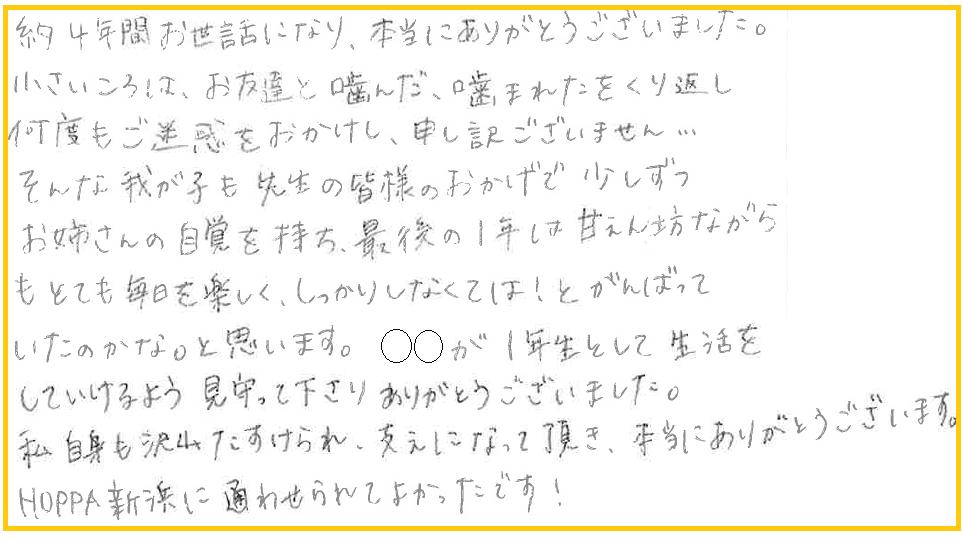 約4年間お世話になり、本当にありがとうございました。
小さいころは、お友達と噛んだ、噛まれたをくり返し
何度もご迷惑をおかけし、申し訳ございません…
そんな我が子も先生の皆様のおかげで少しずつ
お姉さんの自覚を持ち、最後の1年は甘えん坊ながら
もとても毎日を楽しく、しっかりしなくては!とがんばって
いたのかな。と思います。〇〇が1年生として生活を
していけるよう見守って下さりありがとうございました。
私自身も沢山たすけられ、支えになって頂き、本当にありがとうございます。
HOPPA新浜に通わせられてよかったです!